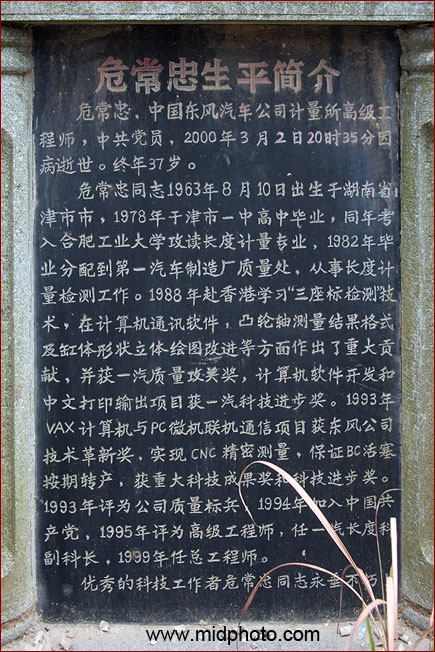 危常忠生平简介
危常忠，中国东风汽车公司计量所高级工
程师，中共党员，2000年3月2日20时35分因
病逝世。终年37岁。
危常忠同志1963年8月10日出生于湖南省
津市市，1978年于津市一中高中毕业，同年考
入合肥工业大学攻读长度计量专业，1982年毕
业分配到第一汽车制造厂质量处，从事长度计
量检测工作。1988年赴香港学习“三座标检测”技
术，在计算机通讯软件，凸轮轴测量结果格式
及缸体形状立体绘图改进等方面作出了重大贡
献，并获一汽质量攻关奖，计算机软件开发和
中文打印输出项目获一汽科技进步奖。1993年
VAX计算机与PC微机联机通信项目获东风公司
技术革新奖，实现CNC精密测量，保证BC活塞
按期转产，获重大科技成果奖和科技进步奖。
1993年评为公司质量标兵，1994年加入中国共
产党，1995年评为高级工程师，任一汽长度科
副科长，1999年任总工程师。
优秀的科技工作者危常忠同志永垂不朽
www.midphoto.com